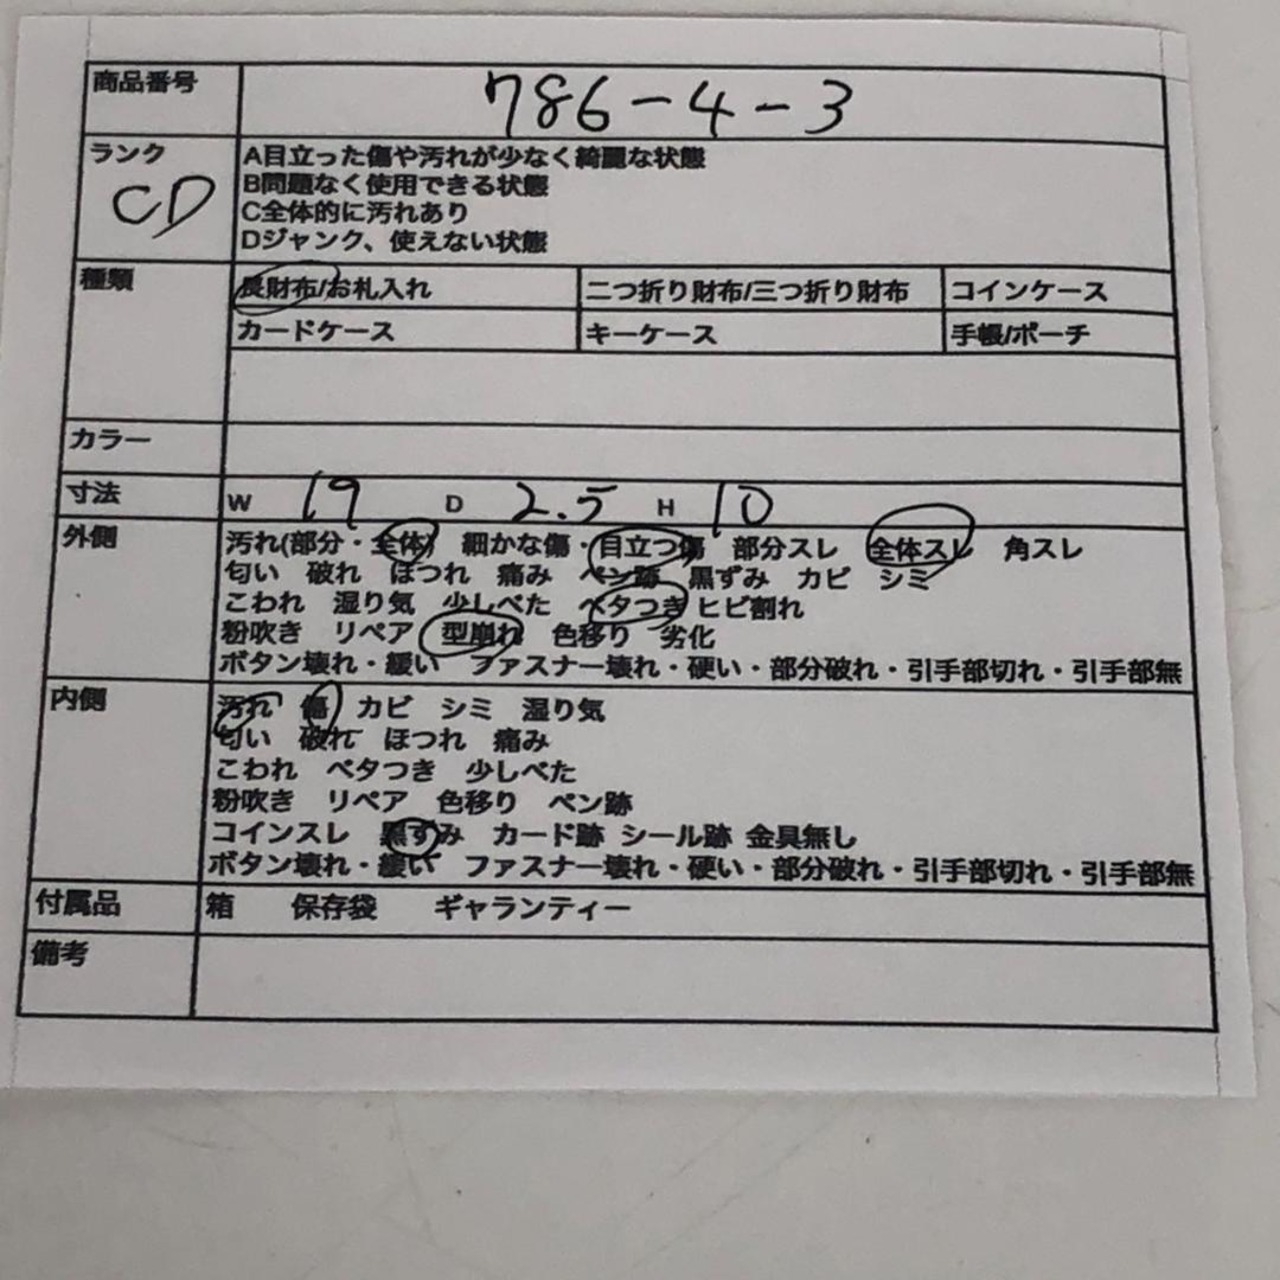 商品番号 786-4-3
ランク CD
A目立った傷や汚れが少なく綺麗な状態
B問題なく使用できる状態
C全体的に汚れあり
Dジャンク、使えない状態
種類 長財布/お札入れ 二つ折り財布/三つ折り財布 コインケース
カードケース キーケース 手帳/ポーチ
カラー
寸法 W 19 D 2.5 H 10
外側 汚れ(部分・全体) 細かな傷・目立つ傷 部分スレ 全体スレ 角スレ
匂い 破れ ほつれ 痛み ペン跡 黒ずみ カビ シミ
こわれ 湿り気 少しべた ベタつき ヒビ割れ
粉吹き リペア 型崩れ 色移り 劣化
ボタン壊れ・緩い ファスナー壊れ・硬い・部分破れ・引手部切れ・引手部無
内側 汚れ 傷 カビ シミ 湿り気
匂い 破れ ほつれ 痛み
こわれ ベタつき 少しべた
粉吹き リペア 色移り ペン跡
コインスレ 黒ずみ カード跡 シール跡 金具無し
ボタン壊れ・緩い ファスナー壊れ・硬い・部分破れ・引手部切れ・引手部無
付属品 箱 保存袋 ギャランティー
備考